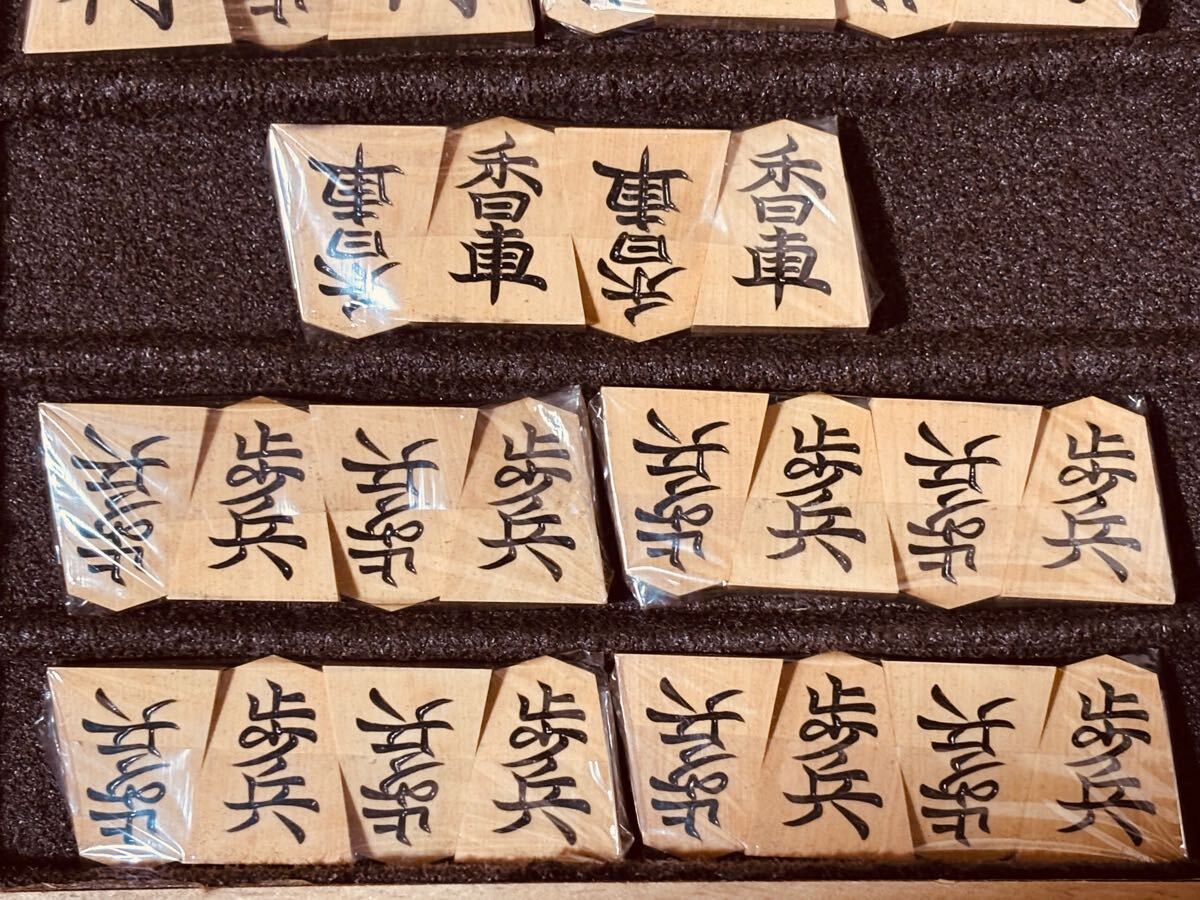 香車 香車 香車 香車
歩兵 歩兵 歩兵 歩兵 歩兵 歩兵 歩兵 歩兵
歩兵 歩兵 歩兵 歩兵 歩兵 歩兵 歩兵 歩兵